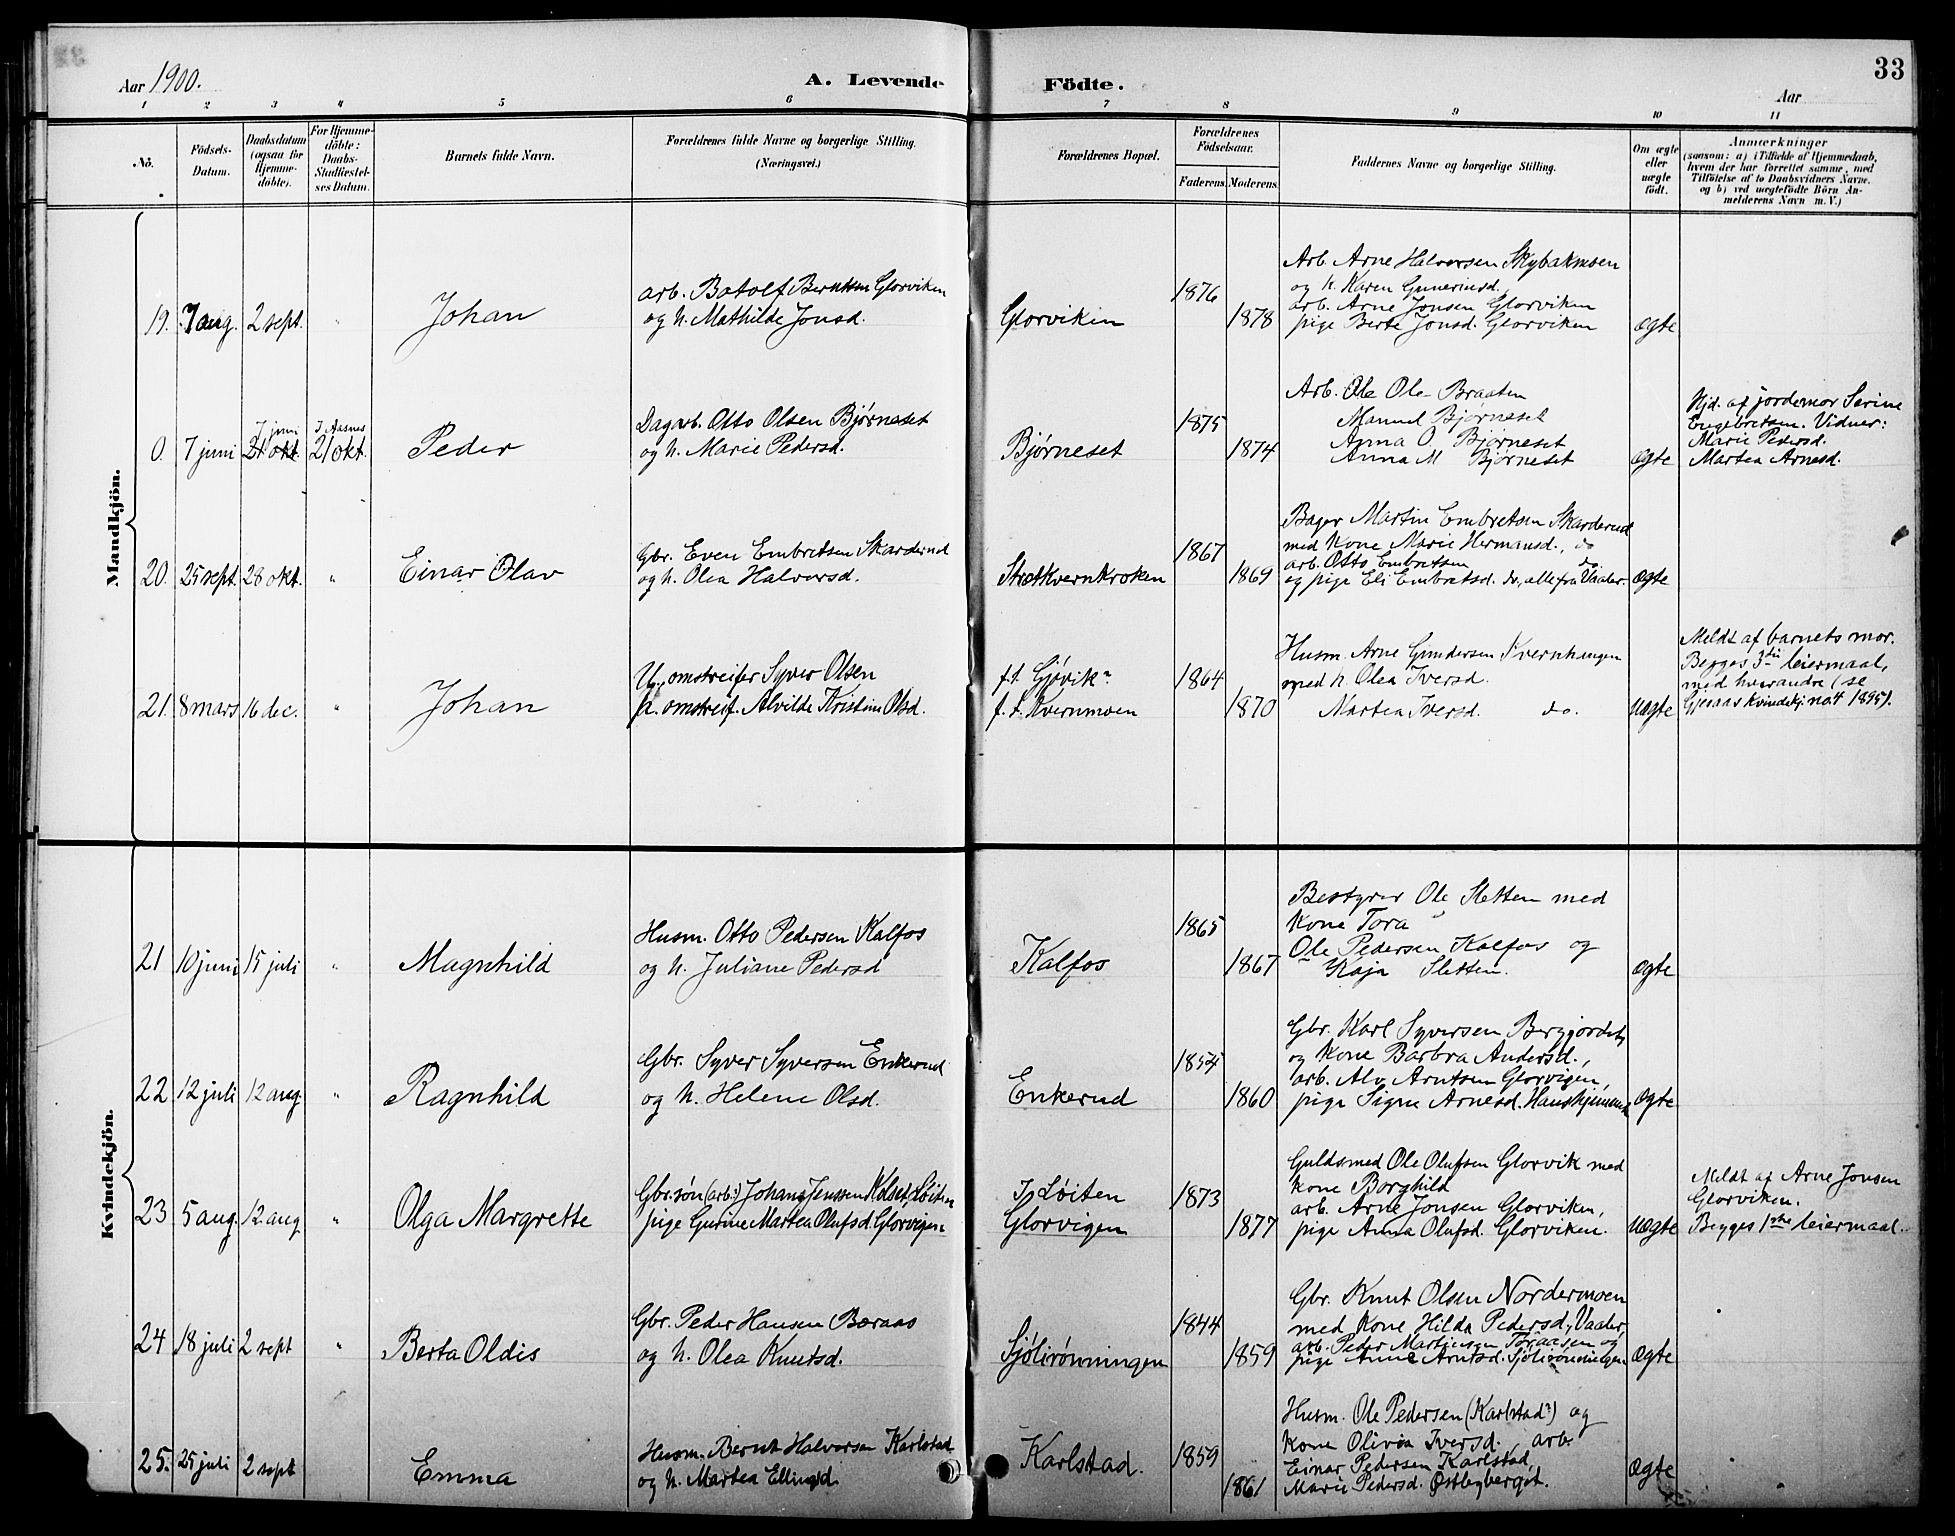 Aar 1900.
A. Levende Födte.
33
Aar
1 2 3 4 5 6 7 8 9 10 11
No.
Födsels-Datum.
Daabsdatum (ogsaa for Hjemme-döbte).
For Hjemme-döbte: Daabs-Stadfæstel-ses Datum.
Barnets fulde Navn.
Forældrenes fulde Navne og borgerlige Stilling. (Næringsvei.)
Forældrenes Bopæl.
Forældrenes Födselsaar.
Faderens. Moderens.
Faddernes Navne og borgerlige Stilling.
Om ægte eller uægte födt.
Anmærkninger
(saasom: a) i Tilfælde af Hjemmedaab,
hvem der har forrettet samme, med
Tilföielse af to Daabsvidners Navne.
og b) ved uægtefödte Börn An-
melderens Navn m. V.)
Mandkjön.
19. 7 aug. 2 sept. " Johan
arb. Botolf Berntsen Glorviken
og h. Mathilde Jonsd.
Glorviken
1876
1878
Arb. Arne Halvorsen Skybakmoen
og h. Karen Gunerinsd.,
arb. Arne Jonsen Glorviken
pige Berte Jonsd. Glorviken
ægte
0. 7 juni
7 juni
21 okt.
I Aasnes
21 okt.
Peder
Dagarb. Otto Olsen Bjørneset
og h. Marie Pedersd.
Bjørneset
1875
1874
Arb. Ole Ols Braaten
Manuel Bjørneset
Anna O. Bjørneset
Anna M Bjørneset
ægte
Hjd. af jordemor Serine
Engebretsen. Vidner:
Marie Pedersd.
Martea Arnesd.
20. 25 sept. 28 okt. " Einar Olav
Gbr. Even Embretsen Skarderud
og h. Olea Halvorsd.
Stratkvernkroken
1867
1869
Bager Martin Embretsen Skarderud
med kone Marie Hermansd., do
arb. Otto Embretsen do.
og pige Eli Embretsd. do, alle fra Vaaler.
ægte
21. 8 mars 16 dec. " Johan
Ug. omstreifer Syver Olsen
p. omstreif. Alvilde Kristine Olsd.
f.t. Gjøvik?
f.t. Kvernmoen
1864
1870
Husm. Arne Gundersen Kvernhaugen
med h. Olea Iversd.
Martea Iversd. do.
uægte
Meldt af barnets mor.
Begges 3die leiermaal,
med hverandre (se
Gjesaas Kvindekj. no. 4 1895).
Kvindekjön.
21 10 juni 15 juli " Magnhild
Husm. Otto Pedersen Kalfos
og h. Juliane Pedersd
Kalfos
1865
1867
Bestyrer Ole Sletten med
kone Tora
Ole Pedersen Kalfos og
Kaja Sletten.
ægte
22 12 juli 12 aug. " Ragnhild
Gbr. Syver Syversen Enkerud
og h. Helene Olsd.
Enkerud
1854
1860
Gbr. Karl Syversen Bergjordet,
og kone Barbra Andersd.,
arb. Alv Arntsen Glorvigen,
pige Signe Arnesd. Hanskjemmen
ægte
23 5 aug. 12. aug " Olga Margrette
Gbr.søn (arb.?) Johans Jenssen Kolset, Løiten
pige Gurine Martea Olufsd. Glorvigen
I Løiten
Glorvigen
1873
1877
Guldsmed Ole Olufsen Glorvik med
kone Borghild
arb. Arne Jonsen Glorviken,
pige Anna Olufsd. Glorviken.
uægte
Meldt af Arne Jonsen
Glorviken.
Begges 1ste leiermaal.
24 18 juli 2 sept " Berta Oldis
Gbr. Peder Hansen Beraas
og h. Olea Knutsd.
Sjölirønningen
1844
1859
Gbr. Knut Olsen Nordermoen
med kone Hilda Pedersd., Vaaler
arb. Peder Martinsen Traasen og
pige Anne Arntsd. Sjölirønningen
ægte
25. 25 juli 2 sept Emma
Husm. Bernt Halvorsen Karlstad
og h. Martea Ellingsd.
Karlstad.
1859
1861
Husm. Ole Pedersen (Karlstad?) og
kone Olivia Iversd., arb.
Einar Pedersen Karlstad,
Marie Pedersd. Østlegberget.
ægte